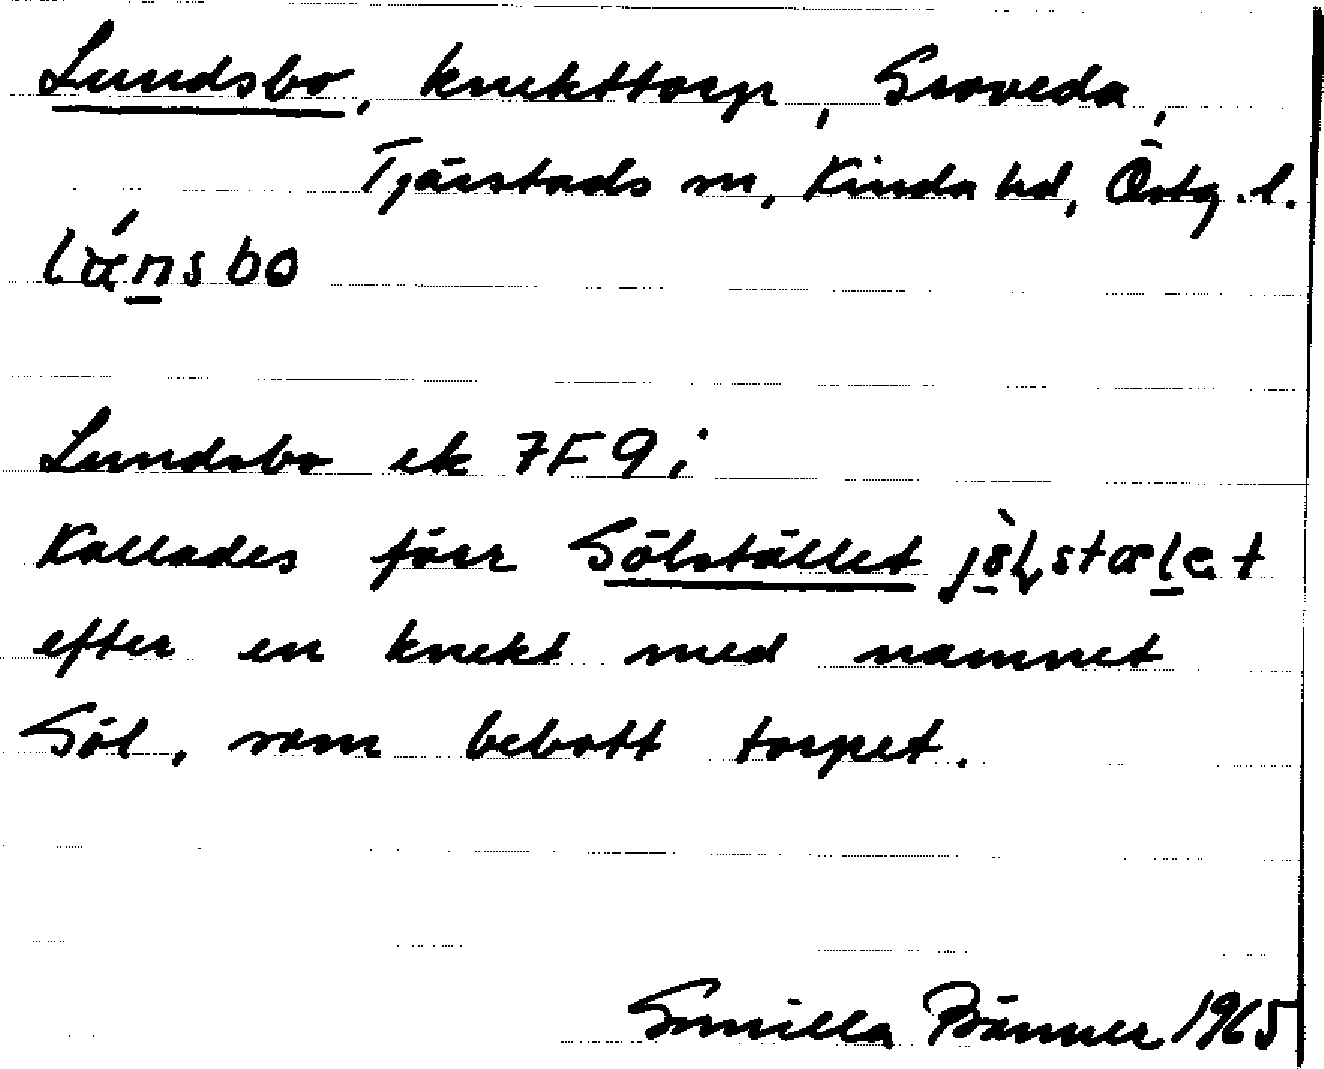 Lundsbo, knekttorp, Groveda,
Tjärstads sn, Kinda hd, Östg. l.
Lundsbo ek 7F 9i
Kallades förr Gölstället
efter en knekt med namnet
Göl, som bebott torpet.
Gunilla 1965